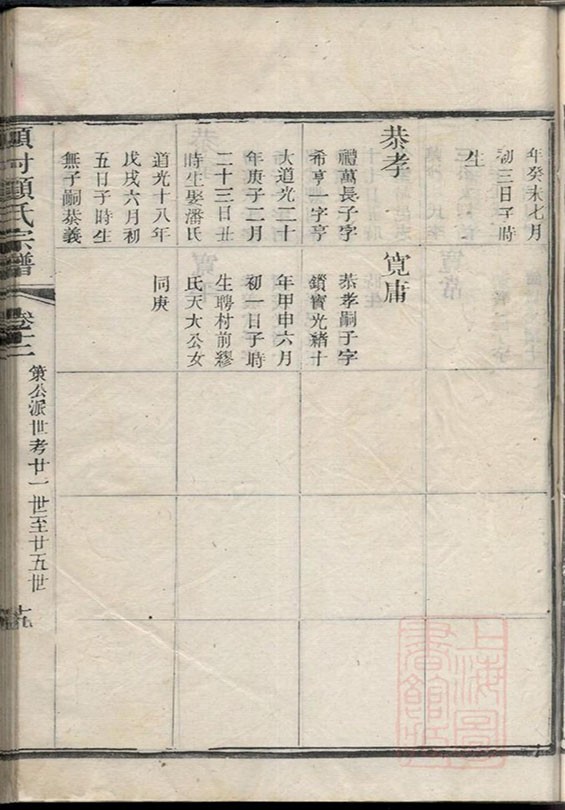 年癸未七月
初三日子時
生
恭孝
禮萬長子字
希亨一字亭
大道光二十
年庚子二月
二十三日丑
時生娶潘氏
道光十八年
戊戌六月初
五日子時生
無子嗣恭義
寬庸
恭孝嗣子字
鎖寶光緒十
年甲申六月
初一日子時
生聘村前繆
氏天大公女
同庚
顧氏宗譜
卷十二
策公派世考廿一世至廿五世
十九
上海圖
書館藏